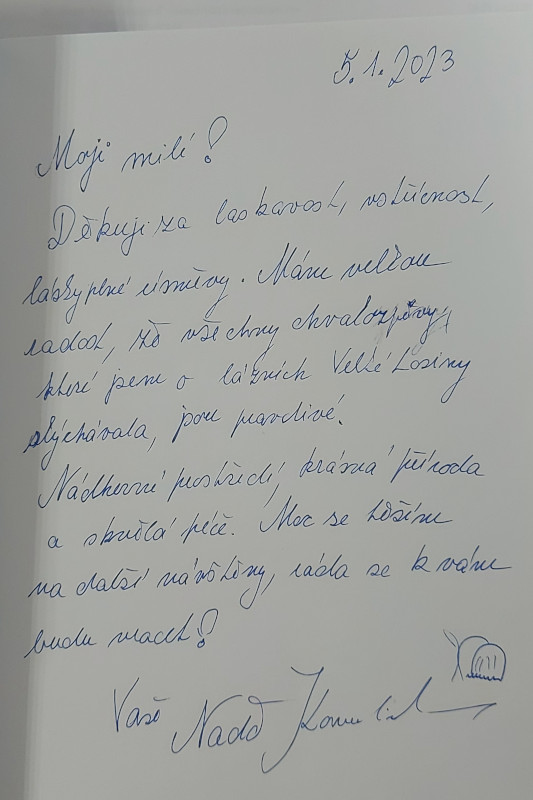 5.1.2023
Moji milí!
Děkuji za laskavost, vstřícnost,
láskyplné úsměvy. Mám velkou
radost, že všechny chvalozpěvy,
které jsem o lázních Velké Losiny
slýchávala, jsou pravdivé.
Nádherné prostředí, krásná příroda
a skvělá péče. Moc se těším
na další návštěvy, ráda se k vám
budu vracet!
Vaše Naďa